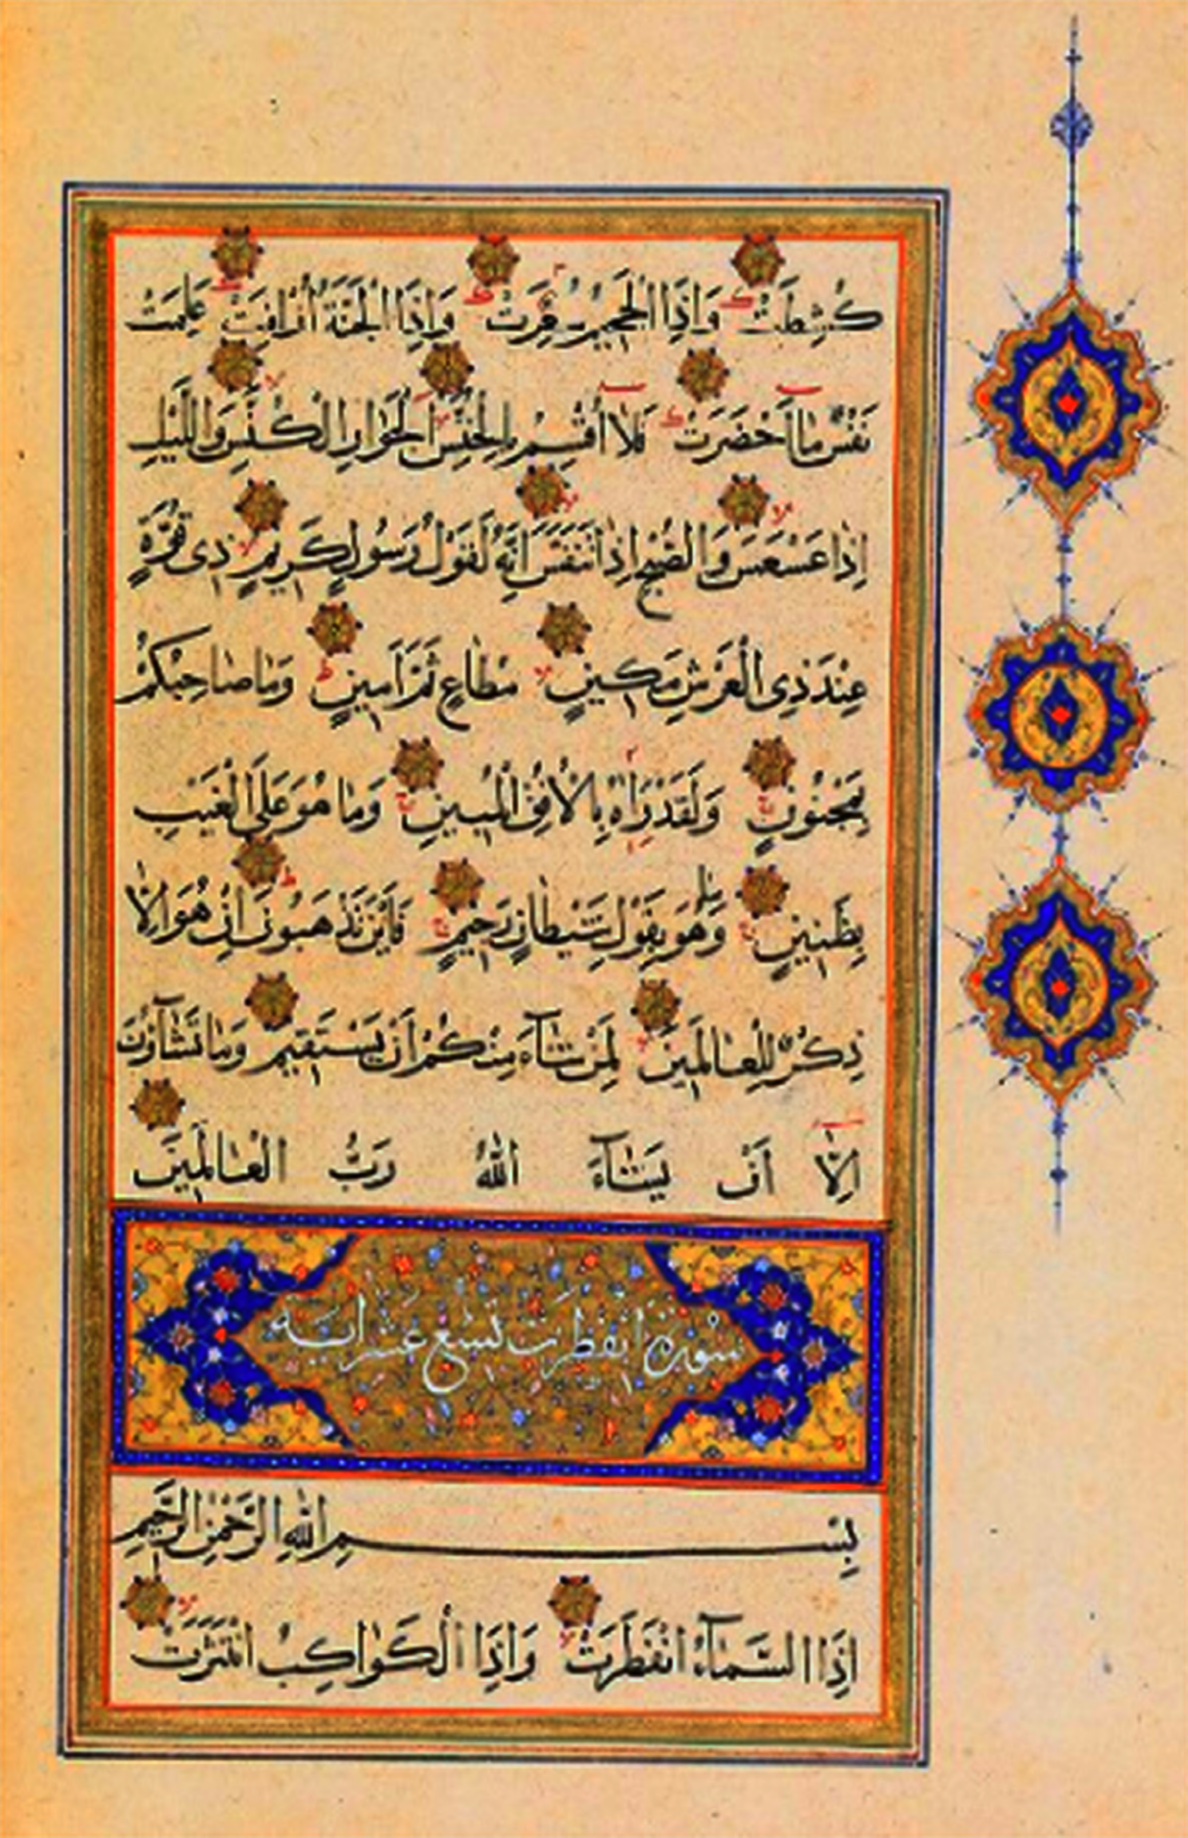 كُشِطَتْ وَاِذَا الْجَحِيمُ سُعِّرَتْ وَاِذَا الْجَنَّةُ اُزْلِفَتْ عَلِمَتْ
نَفْسٌ مَا اَحْضَرَتْ فَلَا اُقْسِمُ بِالْخُنَّسِ الْجَوَارِ الْكُنَّسِ وَالَّيْلِ
اِذَا عَسْعَسَ وَالصُّبْحِ اِذَا تَنَفَّسَ اِنَّهُ لَقَوْلُ رَسُولٍ كَرِيمٍ ذِى قُوَّةٍ
عِنْدَ ذِى الْعَرْشِ مَكِينٍ مُطَاعٍ ثَمَّ اَمِينٍ وَمَا صَاحِبُكُمْ
بِمَجْنُونٍ وَلَقَدْ رَاٰهُ بِالْاُفُقِ الْمُبِينِ وَمَا هُوَ عَلَى الْغَيْبِ
بِظَنِينٍ وَمَا هُوَ بِقَوْلِ شَيْطَانٍ رَجِيمٍ فَاَيْنَ تَذْهَبُونَ اِنْ هُوَ اِلَّا
ذِكْرٌ لِلْعَالَمِينَ لِمَنْ شَآءَ مِنْكُمْ اَنْ يَسْتَقِيمَ وَمَا تَشَآؤُنَ
اِلَّا اَنْ يَشَآءَ اللّٰهُ رَبُّ الْعَالَمِينَ
سُورَة انْفَطَرَت تِسْعَ عَشَر ايه
بِسْمِ اللّٰهِ الرَّحْمٰنِ الرَّحِيمِ
اِذَا السَّمَآءُ انْفَطَرَتْ وَاِذَا الْكَوَاكِبُ انْتَثَرَتْ